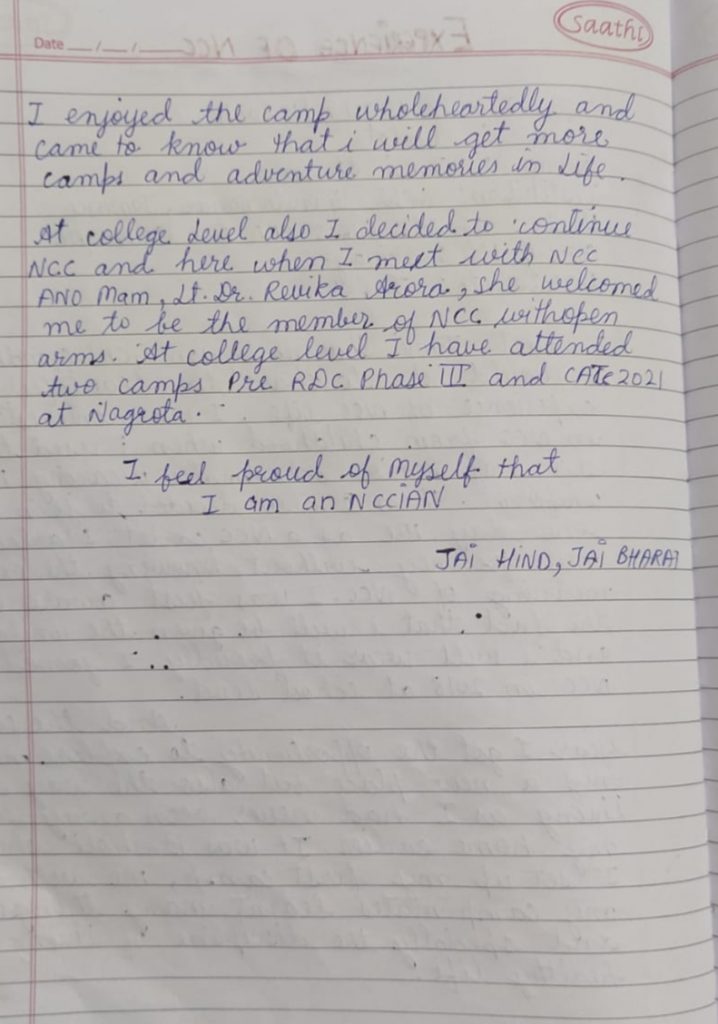 Saathi
Date __/__/____
I enjoyed the camp wholeheartedly and
came to know that i will get more
camps and adventure memories in life.
At college level also I decided to continue
NCC and here when I meet with NCC
ANO Mam, Lt. Dr. Revika Arora, she welcomed
me to be the member of NCC withopen
arms. At college level I have attended
two camps Pre RDC Phase III and CATC 2021
at Nagrota.
I feel proud of myself that
I am an NCCiAN
JAi HiND, JAi BHARAT